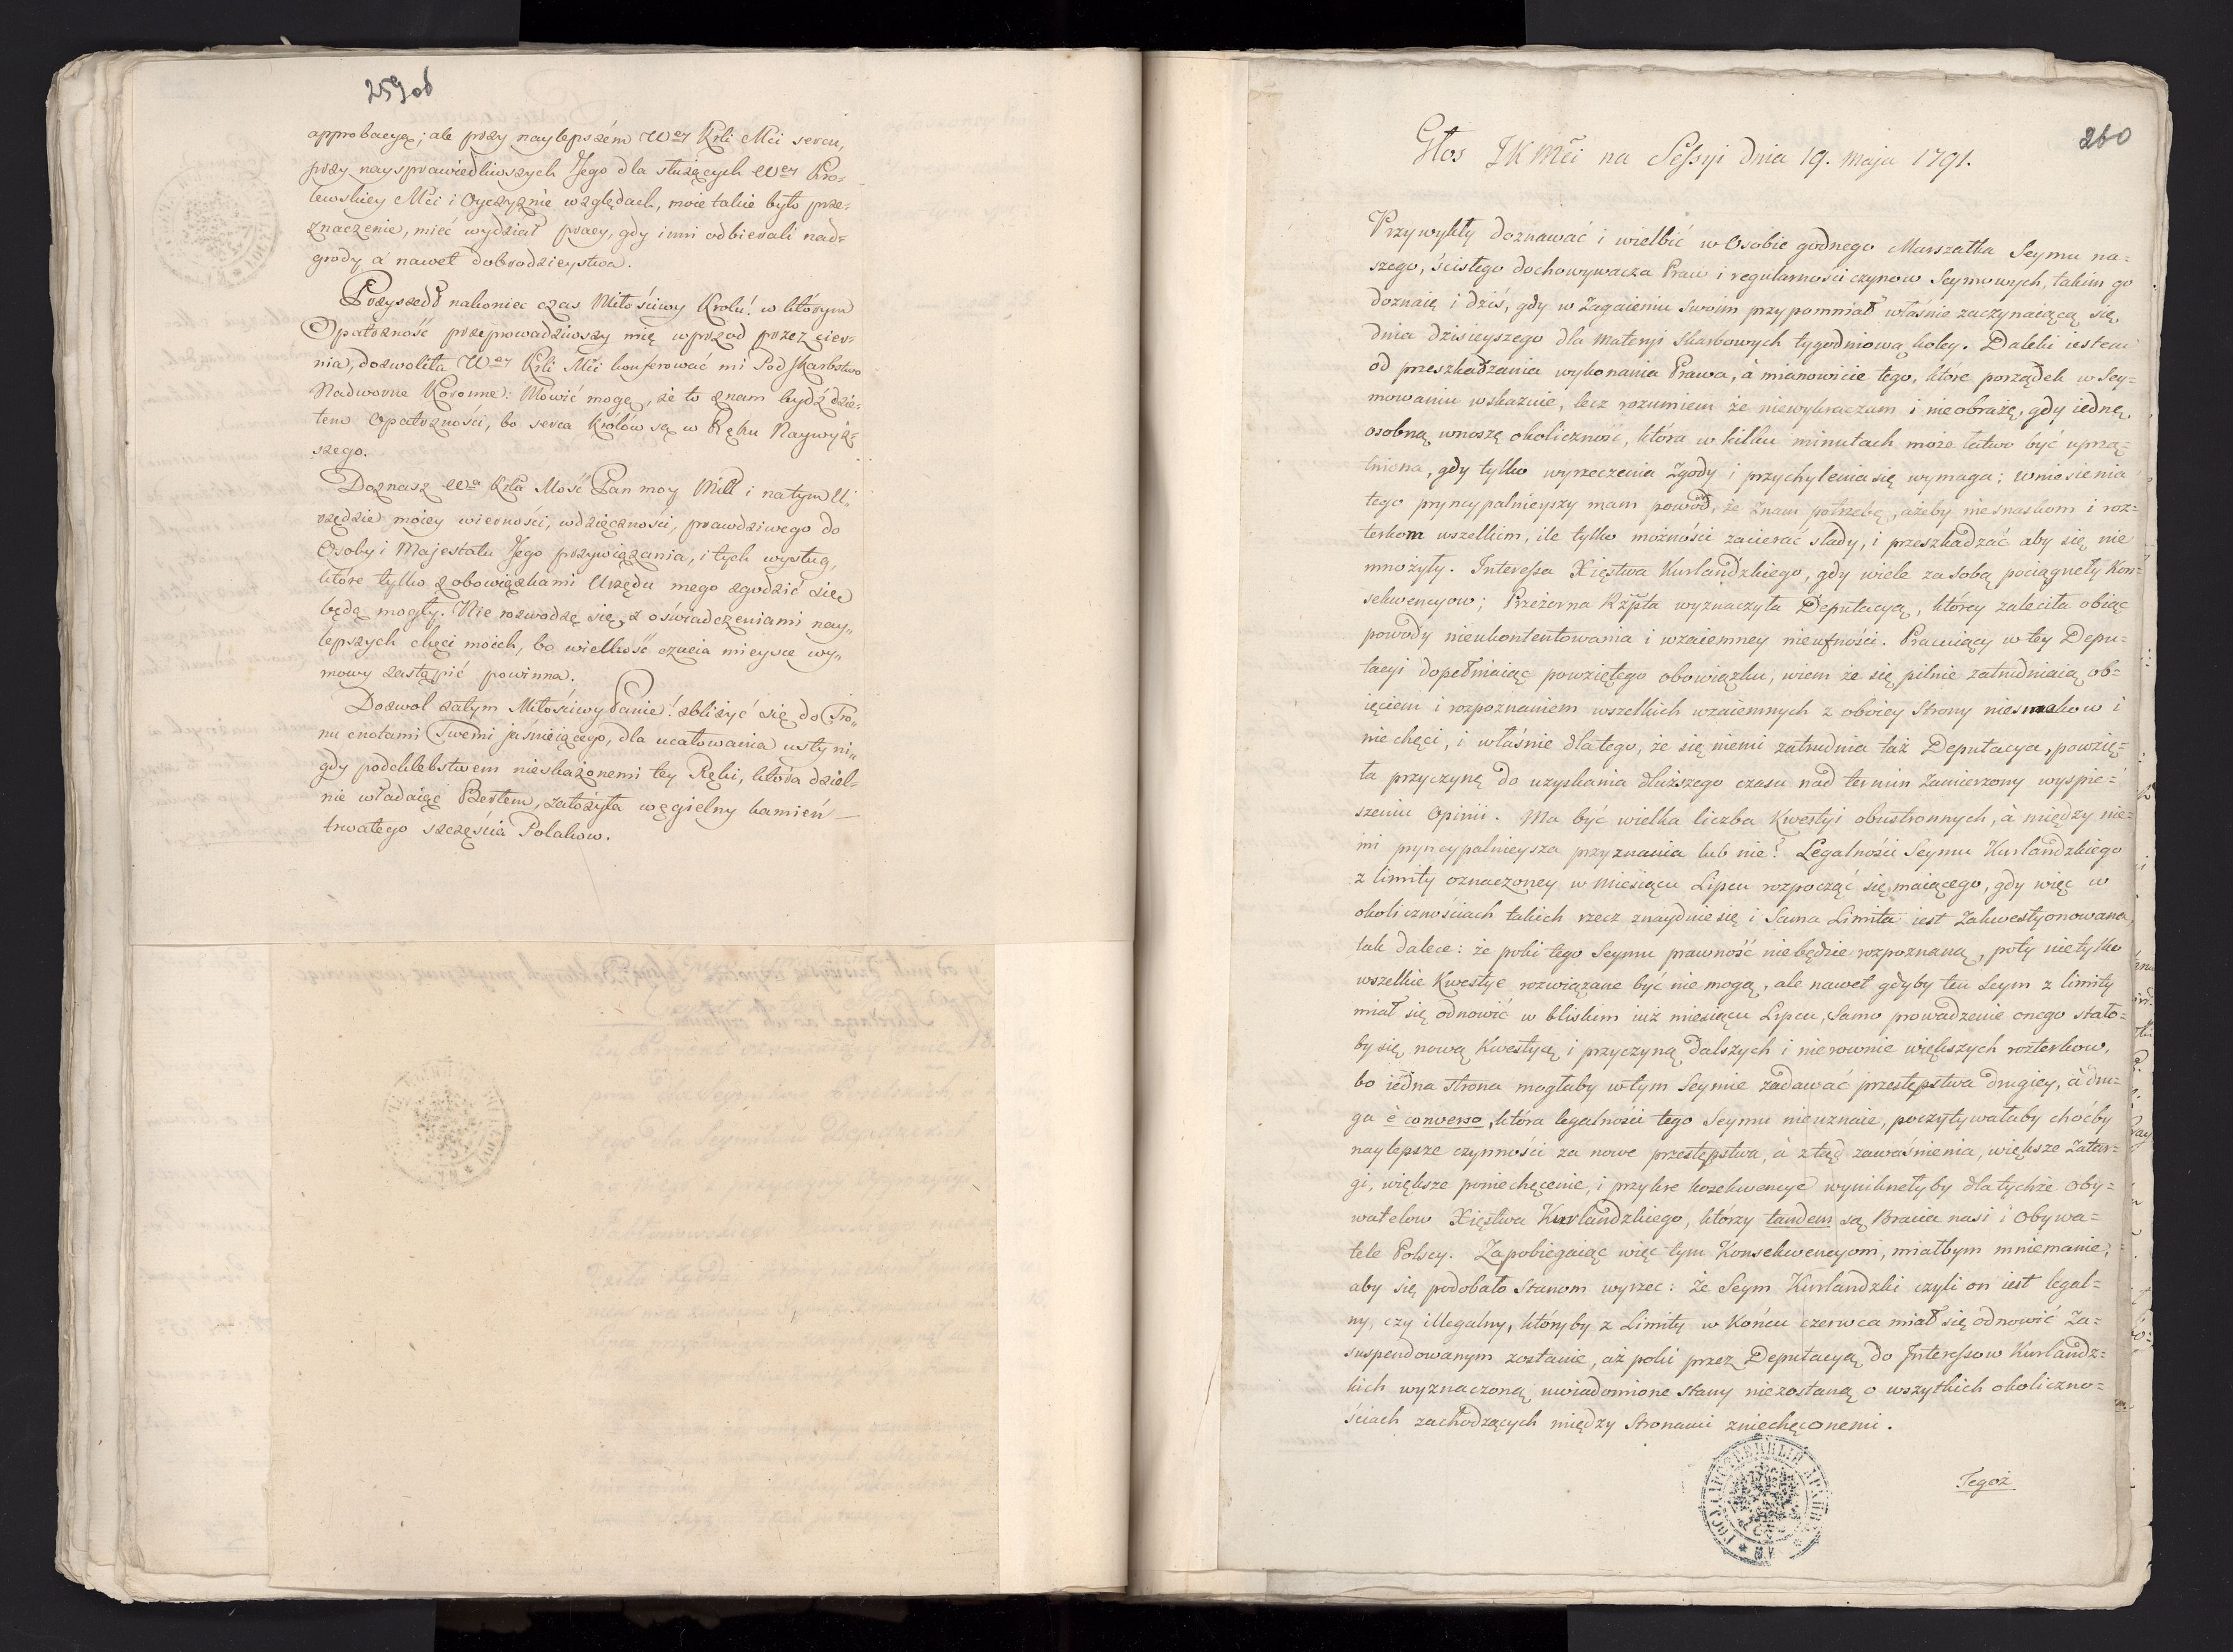 259 od
approbacyą; ale przy naylepszém Wey Krli Mci sercu,
przy naysprawiedliwszych Jego dla służących Wey Kro-
lewskiey Mci i Oyczyznie względach, moie takie było prze-
znaczenie, mieć wydział pracy, gdy inni odbierali nad-
grody á nawet dobrodzieystwa.
Przyszedł nakoniec czas Miłościwy Krolu! w którym
Opatrzność przeprowadziwszy mię wprzod przez cier-
nia, dozwoliła Wey Krli Mci konferować mi Podskarbstwo
Nadworne Koronne: Mowić mogę, że to znam bydź dzie-
łem Opatrzności, bo serca Królów są w Ręku Naywyż-
szego.
Doznasz Wa Krla Mość Pan moy Mił i na tym U-
rzędzie moiey wierności, wdzięczności, prawdziwego do
Osoby i Majestatu Jego przywiązania, i tych wysług,
które tylko z obowiązkami Urzędu mego zgodzić się
będą mogły. Nie rozwodzę się z oświadczeniami nay-
lepszych chęci moich, bo wielkość czucia mieysce wy-
mowy zastąpić powinna.
Dozwol zatym Miłościwy Panie! zbliżyć się do Tro-
nu cnotami Twemi jaśnieiącego, dla ucałowania usty ni-
gdy podchlebstwem nieskażonemi tey Ręki, która dziel-
nie władaiąc Berłem, założyła węgielny kamień
trwałego szczęścia Polakow.
260
Głos JKMci na Sessyi dnia 19. Maja 1791.
Przywykły doznawać i wielbić w Osobie godnego Marszałka Seymu na-
szego, ścisłego dochowywacza Praw i regularności czynow Seymowych, takim go
doznaię i dziś, gdy w Zagaieniu swoim przypomniał właśnie zaczynaiącą się
dnia dzisieyszego dla materyi Skarbowych tygodniową koley. Daleki iestem
od przeszkadzania wykonania Prawa, à mianowicie tego, które porządek w Sey-
mowaniu wskazuie, lecz rozumiem że niewykraczam i nie obrażę, gdy iednę
osobną wnoszę okoliczność, która w kilku minutach może łatwo być uprzą-
tniona, gdy tylko wyrzeczenia zgody i przychylenia się wymaga; wniesienia
tego pryncypalnieyszy mam powód, że znam potrzebę, ażeby niesnaskom i roz-
terkom wszelkim, ile tylko możności zacierać slady, i przeszkadzać aby się nie
mnożyły. Interessa Xięstwa Kurlandzkiego, gdy wiele za sobą pociągnęły Kon-
sekwencyow; Przezorna Rzpta wyznaczyła Deputacyą, którey zaleciła obiąć
powody nieukontentowania i wzaiemney nieufności. Pracuiący w tey Depu-
tacyi dopełniaiąc powziętego obowiązku, wiem że się pilnie zatrudniaią ob-
ięciem i rozpoznaniem wszelkich wzaiemnych z oboiey strony niesmakow i
niechęci, i właśnie dlatego, że się niemi zatrudnia taż Deputacya, powzię-
ta przyczynę do uzyskania dłuższego czasu nad termin zamierzony wyspie-
szeniu Opinii. Ma być wielka liczba Kwestyi obustronnych, à między nie-
mi pryncypalnieysza przyznania lub nie? Legalności Seymu Kurlandzkiego
z limity oznaczoney w miesiącu Lipcu rozpocząć się maiącego, gdy więc w
okolicznościach takich rzecz znayduie się i sama Limita iest zakwestyonowana,
tak dalece: że poki tego Seymu prawność niebędzie rozpoznaną, poty nietylko
wszelkie Kwestye rozwiązane być nie mogą, ale nawet gdyby ten Seym z limity
miał się odnowić w bliskim iuż miesiącu Lipcu, samo prowadzenie onego stało-
by się nową Kwestyą i przyczyną dalszych i nierownie większych rozterkow,
bo iedna strona mogłaby w tym Seymie zadawać przestępstwa drugiey, à dru-
ga è converso, która legalności tego Seymu nieuznaie, poczytywałaby choćby
naylepsze czynności za nowe przestępstwa, à ztąd zawaśnienia, większe zatar-
gi, większe poniechęcenie, i przykre konsekwencye wyniknęłyby dla tychże Oby-
watelow Xięstwa Kurlandzkiego, którzy tandem są Bracia nasi i Obywa-
tele Polscy. Zapobiegaiąc więc tym Konsekwencyom, miałbym mniemanie,
aby się podobało Stanom wyrzec: że Seym Kurlandzki czyli on iest legal-
ny, czy illegalny, któryby z Limity w Końcu czerwca miał się odnowić Za-
suspendowanym zostanie, aż poki przez Deputacyą do Interessow Kurlandz-
kich wyznaczoną uwiadomione Stany niezostaną o wszytkich okoliczno-
ściach zachodzących między stronami zniechęconemi.
Tegoż